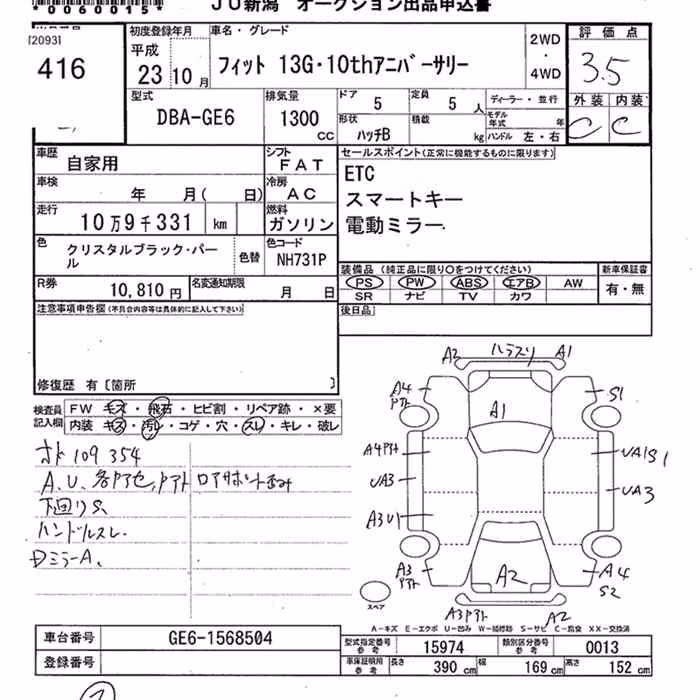 *0060015*
JU新潟 オークション出品申込書
[2093]
416
初度登録年月
平成
23年10月
車名・グレード
フィット 13G・10thアニバーサリー
2WD
・
4WD
評価点
3.5
外装 内装
C C
型式
DBA-GE6
排気量
1300
cc
ドア
5
定員
5 人
ディーラー・並行
モデル年式 年
形状
ハッチB
積載
kg
ハンドル 左・右
車歴
自家用
シフト
FAT
車検
年 月( 日)
冷房
AC
走行
10万9千331 km
燃料
ガソリン
色
クリスタルブラック・パール
色替
色コード
NH731P
R券
10,810 円
名変通知期限
月 日
セールスポイント(正常に機能するものに限ります)
ETC
スマートキー
電動ミラー
装備品 (純正品に限り○をつけてください)
PS PW ABS エアB AW
SR ナビ TV カワ
新車保証書
有・無
後日品
注意事項申告欄(不具合内容等は具体的に記入して下さい)
修復歴 有〔箇所 〕
検査員記入欄
FW キズ・飛石・ヒビ割・リペア跡・×要
内装 キズ・汚レ・コゲ・穴・スレ・キレ・破レ
オド 109354
A.U.各アセ,アト
下回りS.
ハンドルスレ.
DミラーA.
A2 ハラスリ A1
A4 アト
S1
A1
A4アト
UA1S1
UA3
UA3
A3U1
A3 アト
A4
S2
A2
A3アト
A2
スペア
A-キズ E-エクボ U-凹み W-補修跡 S-サビ C-腐食 XX-交換済
車台番号
GE6-1568504
登録番号
型式指定番号 参考
15974
類別区分番号 参考
0013
車庫証明用 参考
長さ 390 cm
幅 169 cm
高さ 152 cm